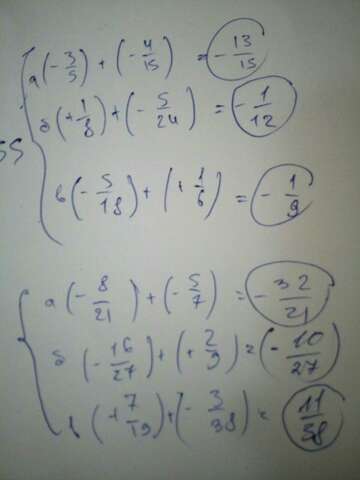 а (-3/5) + (-4/15) = -13/15
б (+1/8) + (-5/24) = -1/12
55
в (-5/18) + (+1/6) = -1/9
а (-8/21) + (-5/7) = -32/21
б (-16/27) + (+2/9) = (-10/27)
в (+7/19) + (-3/38) = 11/38